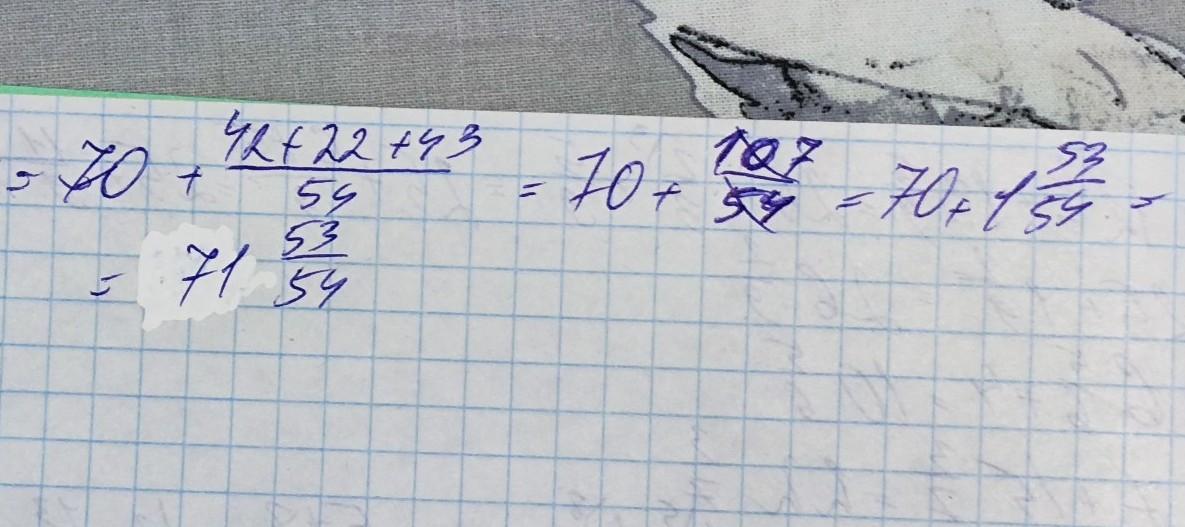 = 70 + \frac{42+22+43}{54} = 70 + \frac{107}{54} = 70 + 1\frac{53}{54} =
= 71\frac{53}{54}